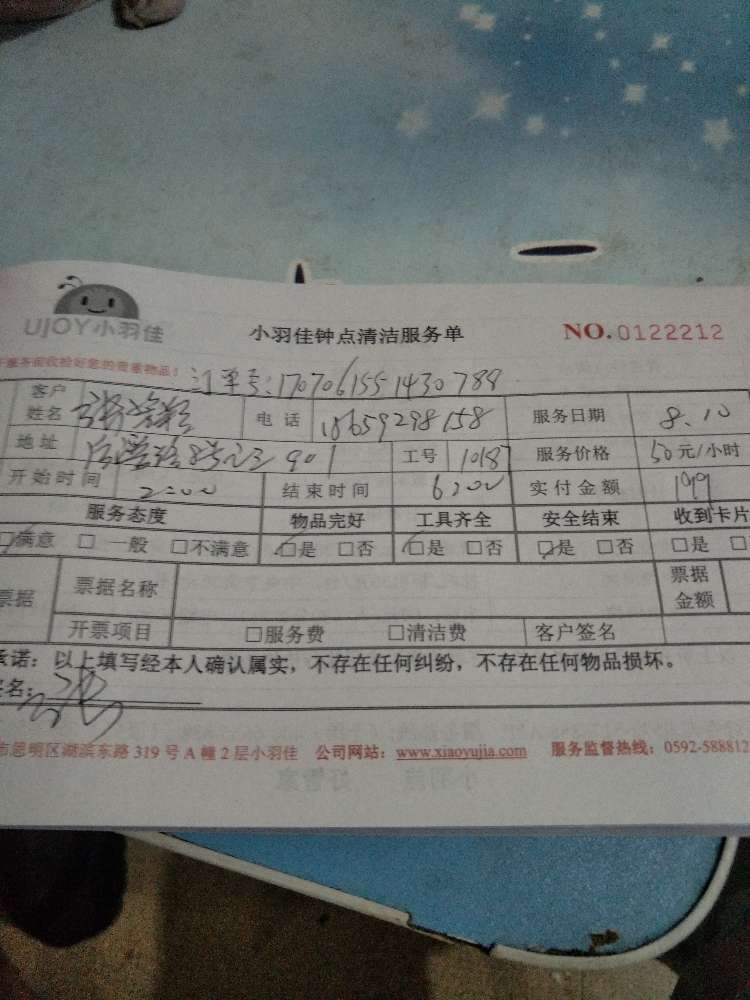 UJOY小羽佳 小羽佳钟点清洁服务单 NO.0122212
服务前请收检好您的贵重物品! 订单号:1707061551430789
客户姓名 张 电话 18659298158 服务日期 8.10
地址 901 工号 10187 服务价格 50元/小时
开始时间 2:00 结束时间 6:00 实付金额 199
服务态度 物品完好 工具齐全 安全结束 收到卡片
□满意 □一般 □不满意 □是 □否 □是 □否 □是 □否 □是 □
票据 票据名称 票据金额
开票项目 □服务费 □清洁费 客户签名
承诺:以上填写经本人确认属实,不存在任何纠纷,不存在任何物品损坏。
签名:
市思明区湖滨东路319号A幢2层小羽佳 公司网站:www.xiaoyujia.com 服务监督热线:0592-588812